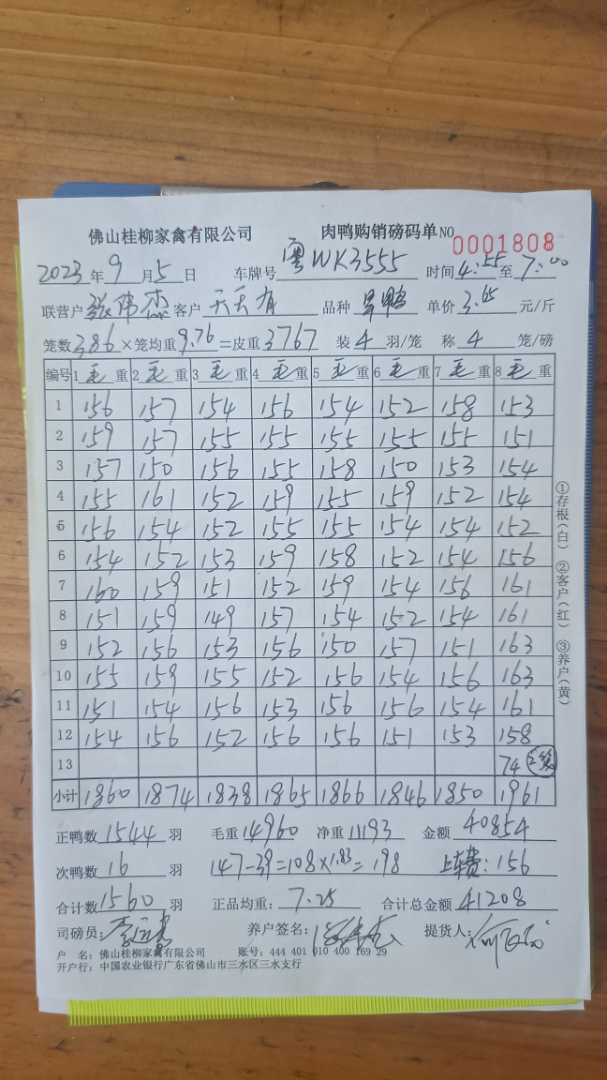 佛山桂柳家禽有限公司 肉鸭购销磅码单 NO 0001808
2023年9月5日 车牌号 粤WK3555 时间4:55至7:00
联营户 张伟杰 客户 天天有 品种 旱鸭 单价 3.65 元/斤
笼数386×笼均重9.76=皮重3767 装4羽/笼 称4笼/磅
编号 1毛重 2毛重 3毛重 4毛重 5毛重 6毛重 7毛重 8毛重
1 156 157 154 156 154 152 158 153
2 159 157 155 155 155 155 155 151
3 157 150 156 155 158 150 153 154
4 155 161 152 159 155 159 152 154
5 156 154 152 155 155 154 154 152
6 154 152 153 159 158 152 154 156
7 160 159 151 152 159 154 156 161
8 151 159 149 157 154 152 154 161
9 152 156 153 156 150 157 151 163
10 155 159 155 152 156 154 156 163
11 151 154 156 153 156 156 154 161
12 154 156 152 156 156 151 153 158
13 74
小计 1860 1874 1838 1865 1866 1846 1850 1961
正鸭数 1544 羽 毛重 14960 净重 11193 金额 40854
次鸭数 16 羽 147-39=108×1.83=198 上车费:156
合计数 1560 羽 正品均重: 7.25 合计总金额 41208
司磅员: 养户签名: 提货人:
户 名: 佛山桂柳家禽有限公司 账号: 444 401 010 400 169 29
开户行: 中国农业银行广东省佛山市三水区三水支行
①存根(白) ②客户(红) ③养户(黄)